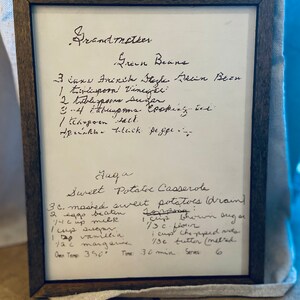 Grandmother
Green Beans
3 cans French Style Green Bean
1 tablespoon Vinegar
2 tablespoons sugar
3-4 tablespoons Cooking oil
1 teaspoon salt
Sprinkle black pepper
Sweet Potatoe Casserole
3 c. mashed sweet potatoes (drain)
2 eggs beaten
1 cup brown sugar
1/4 cup milk
1/3 c flour
1 cup sugar
1 cup chopped nuts
1 tsp vanilla
1/3 c butter (melted
1/2 c margarine
Oven Temp: 350° Time: 30 min Serves: 6